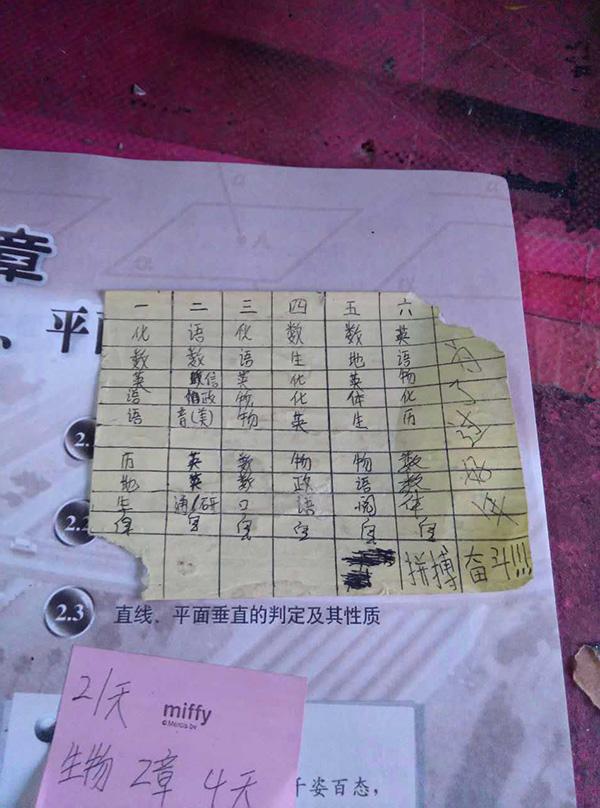 章
、平面
一 二 三 四 五 六
化 语 化 数 数 英
数 数 语 生 地 语
英 信 英 化 英 物
语 政 物 化 体 化
语 音(美) 物 英 生 历
历 英 数 物 物 数
地 英 数 政 语 数
生 通/研 口 语 阅 体
拼搏 奋斗!!!
2.
2.2
2.3 直线、平面垂直的判定及其性质
21天 miffy
© Mercis bv
生物 2章 4天
千姿百态,